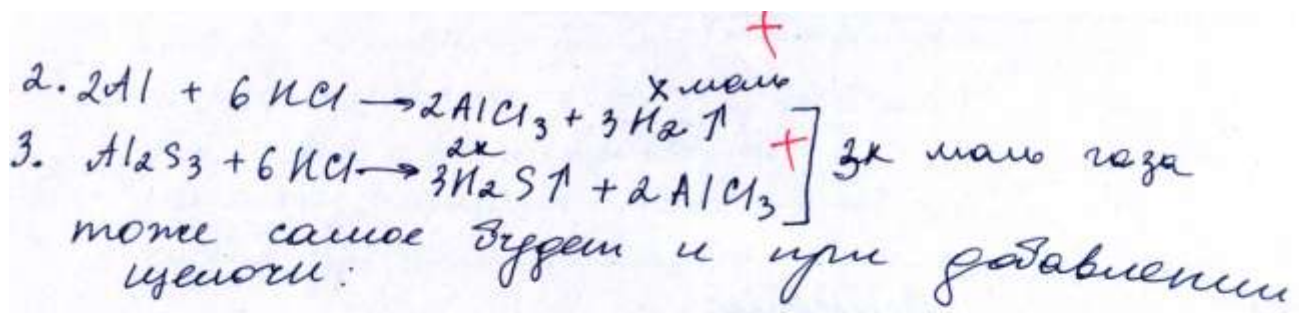 2. 2Al + 6 HCl → 2AlCl₃ + 3H₂↑ x моль
3. Al₂S₃ + 6 HCl → 3H₂S↑ + 2AlCl₃ 2x ] 3x моль газа
тоже самое будет и при добавлении
щелочи: